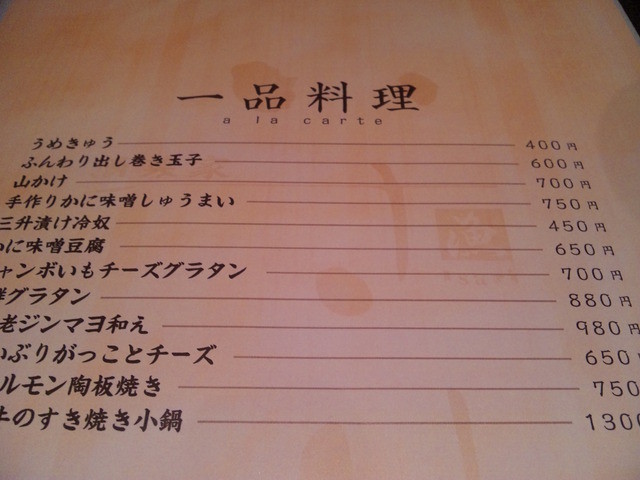 一品料理
a la carte
うめきゅう 400円
ふんわり出し巻き玉子 600円
山かけ 700円
手作りかに味噌しゅうまい 750円
三升漬け冷奴 450円
かに味噌豆腐 650円
ャンボいもチーズグラタン 700円
グラタン 880円
老ジンマヨ和え 980円
いぶりがっことチーズ 650円
ルモン陶板焼き 750
牛のすき焼き小鍋 1300